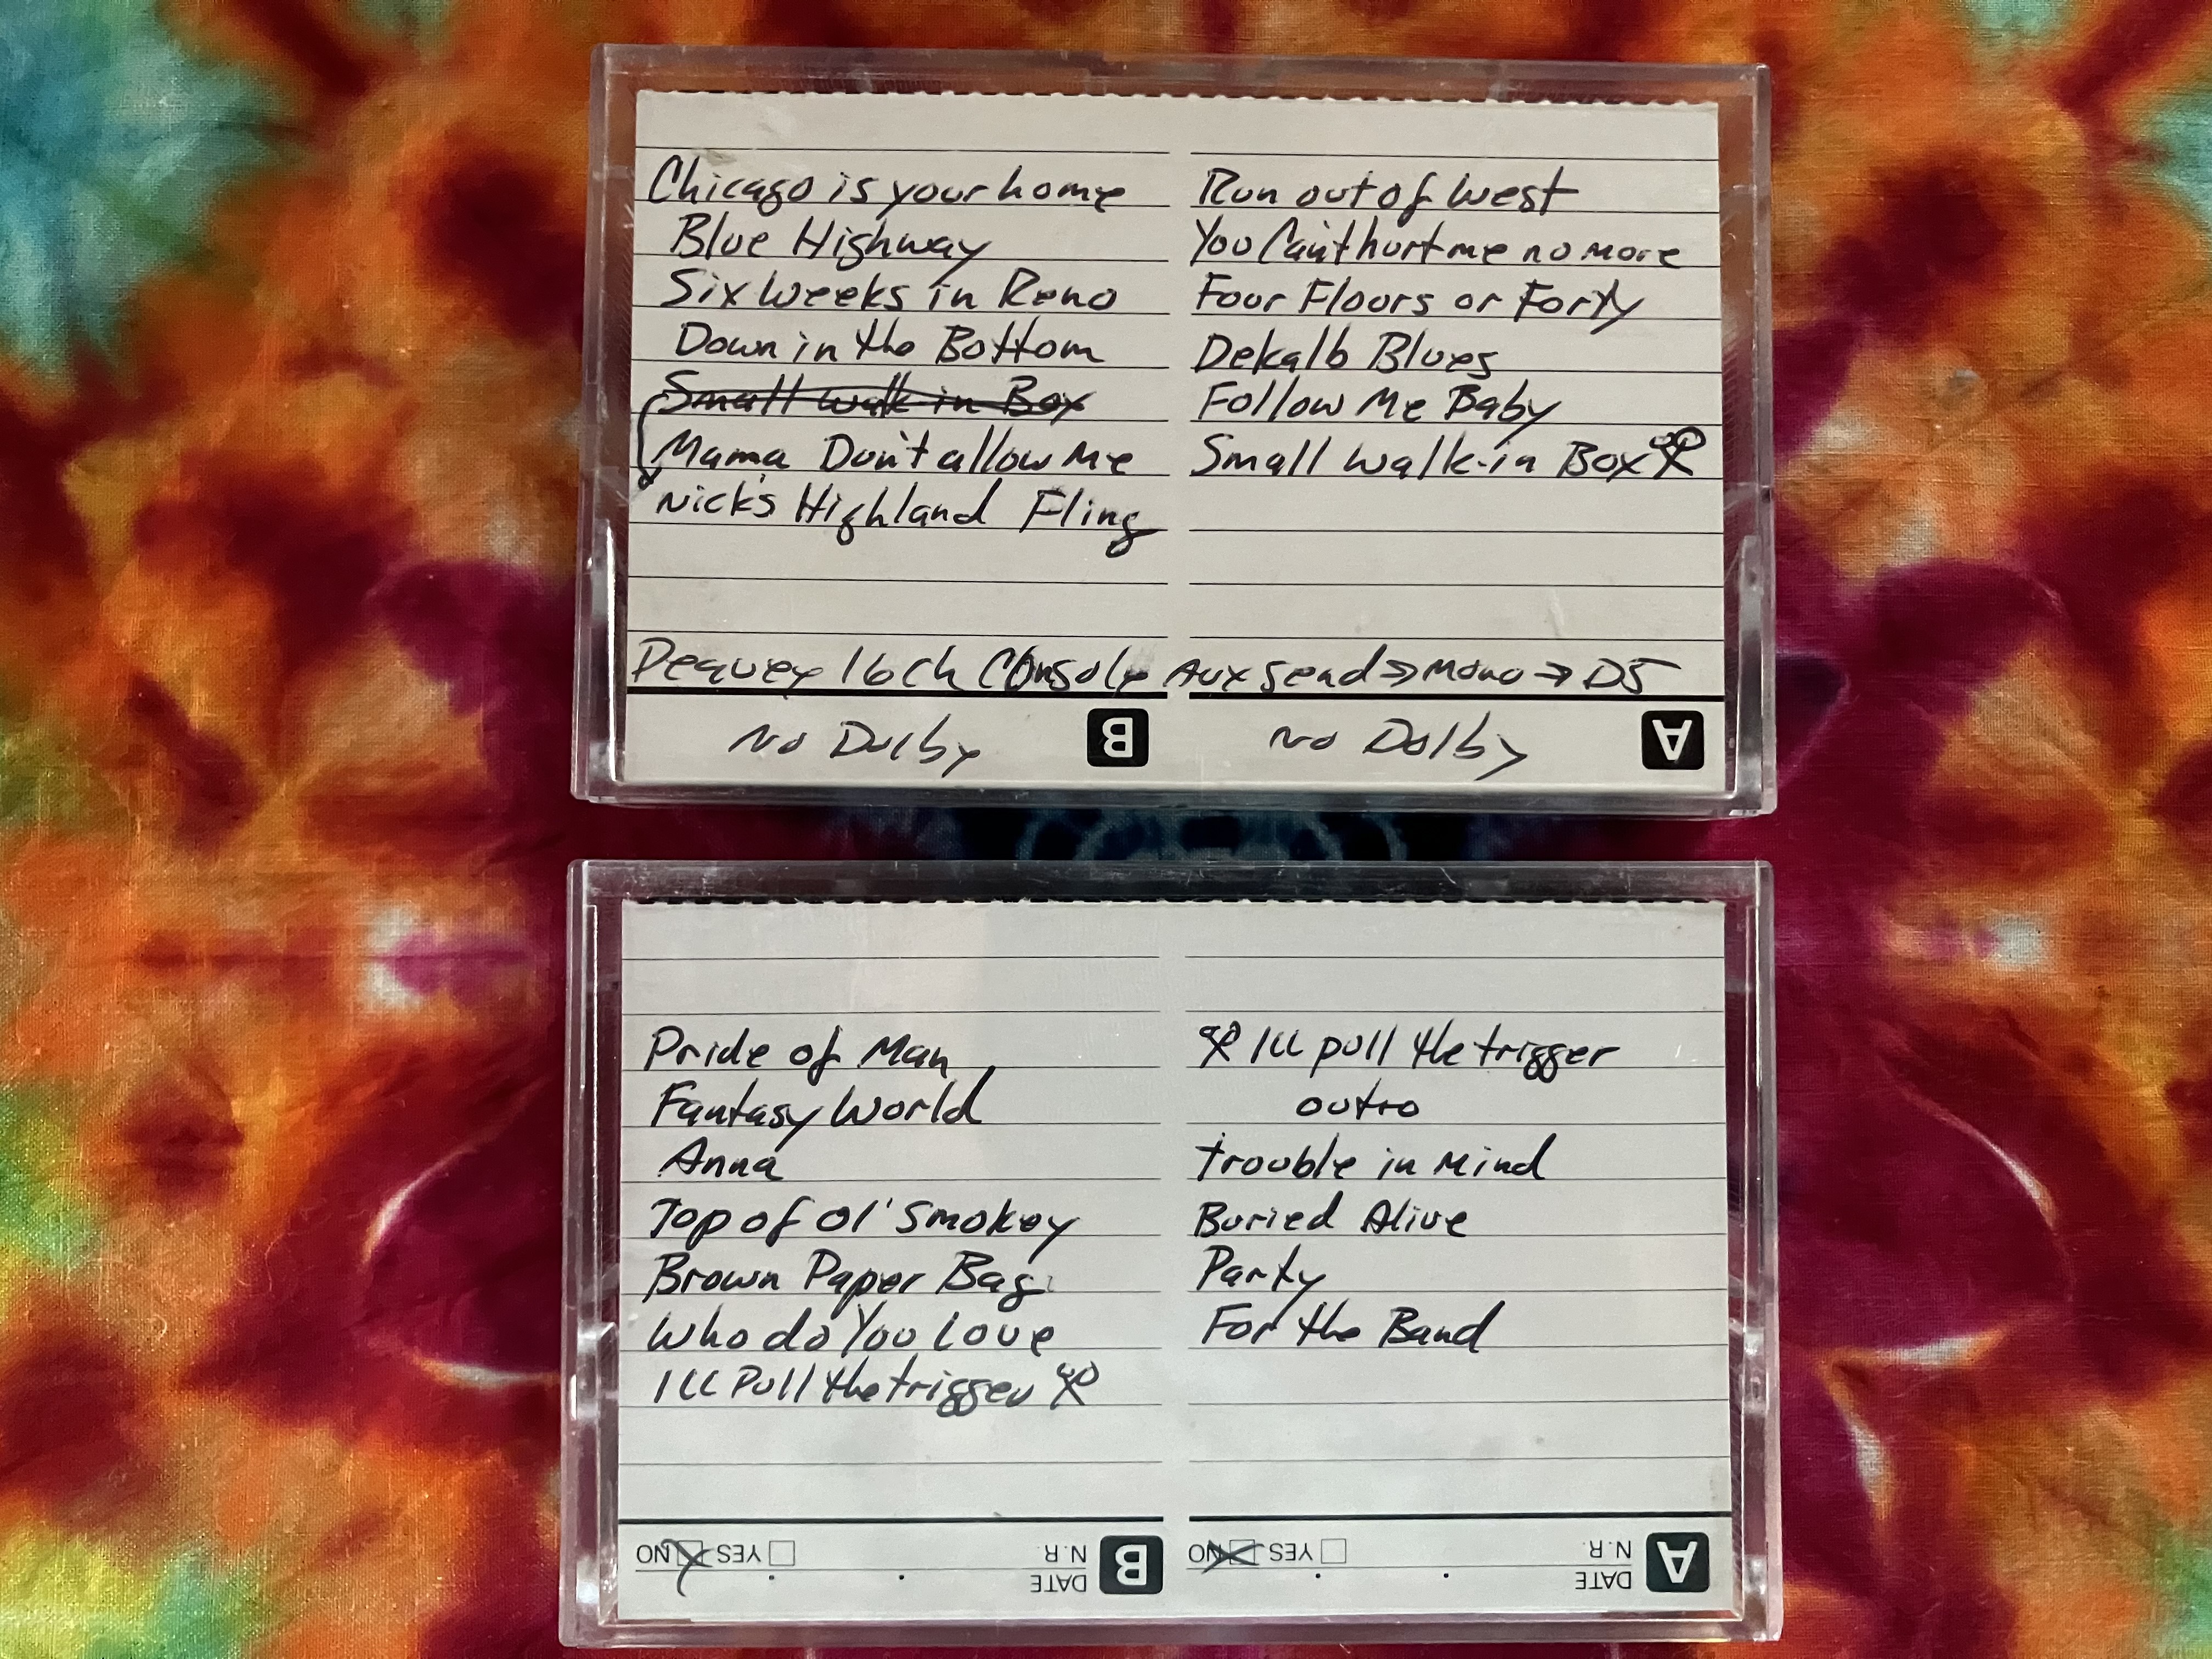 Chicago is your home
Blue Highway
Six Weeks in Reno
Down in the Bottom
Small walk-in Box
Mama Don't allow Me
Nick's Highland Fling
Run out of West
You Can't hurt me no more
Four Floors or Forty
Dekalb Blues
Follow Me Baby
Small Walk-in Box
Peavey 16ch Console Aux Send → Mono → D5
No Dolby B No Dolby A
Pride of Man
Fantasy World
Anna
Top of Ol' Smokey
Brown Paper Bag
Who do You Love
Ill Pull the trigger
NO YES N.R. B
DATE
Ill pull the trigger
outro
trouble in Mind
Buried Alive
Party
For the Band
NO YES N.R. A
DATE